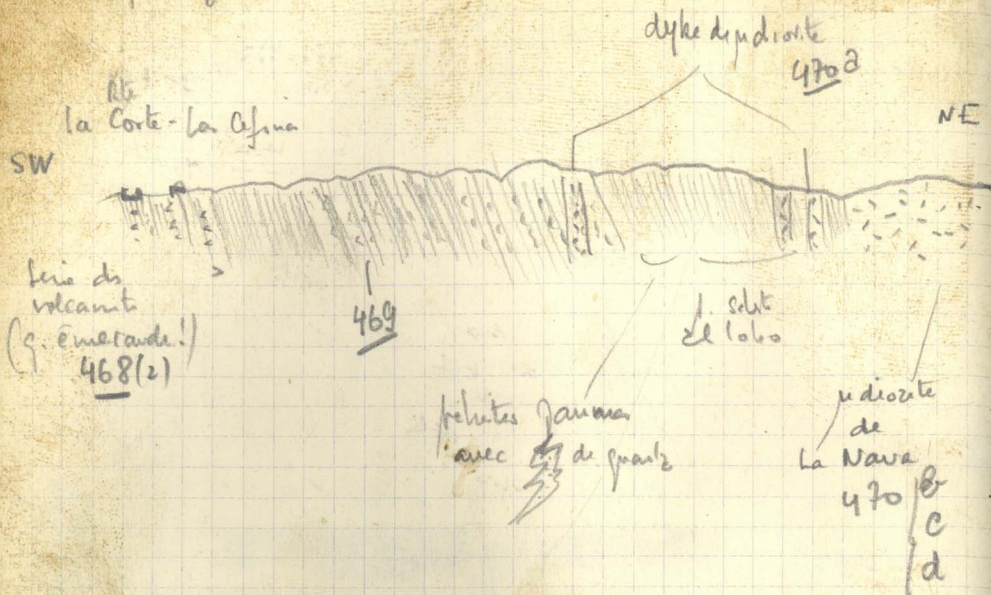 dyke de µdiorite
470a
Rte
la Corte - Las
NE
SW
Serie des
volcanite
(g. émeraude!)
468(2)
469
schist
El lobo
jaunes
avec de quartz
µdiorite
de
La Nava
470 b
c
d